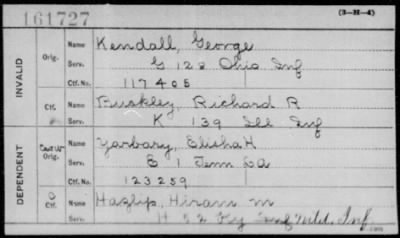 161727
(3-H-4)
INVALID
Orig. Name Kendall, George
Serv. G 122 Ohio Inf
Ctf. No. 117405
Ctf. Name Buckley, Richard R
Serv. K 139 Ill Inf
DEPENDENT
Orig. Name Yarbary, Elisha H
Serv. E 1 Tenn LA
Ctf. No. 123259
C Ctf. Name Hazlip, Hiram M
Serv. H 52 Ky Inf